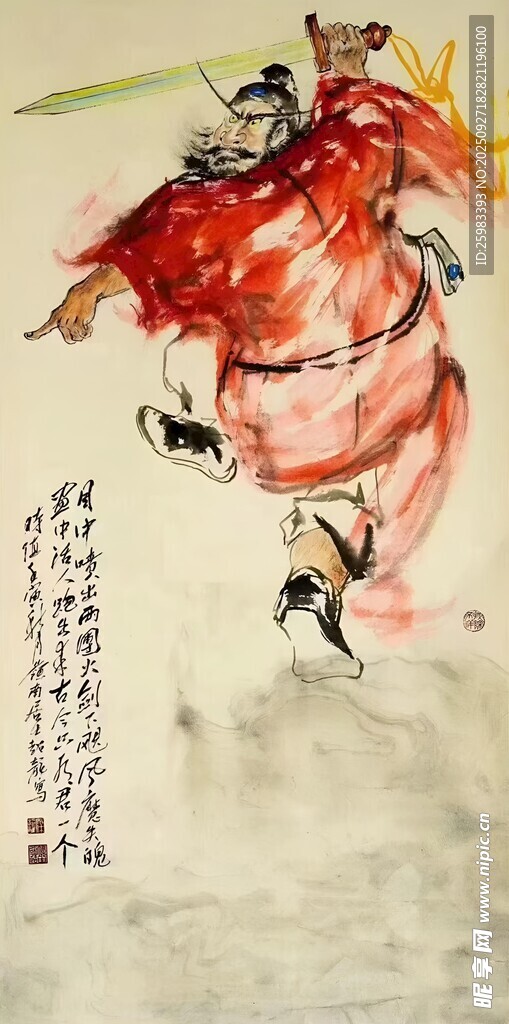 目中喷出两團火劍下飓风魔失魄
画中活人跑出来古今只有君一个
時值壬寅秋月嶺南居士超龍寫
ID:25983393 NO:20250927182821196100
昵享网 www.nipic.cn